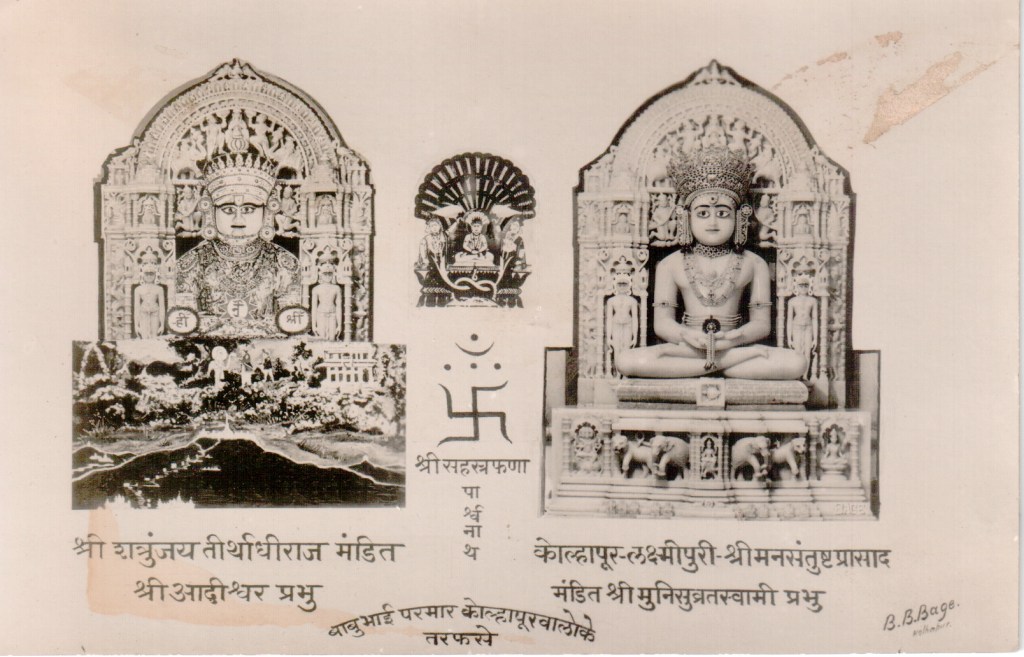 ही
श्रीं
श्री सहस्त्रफणा
पा
र्श्व
ना
थ
श्री शत्रुंजय तीर्थाधीराज मंडित
श्री आदीश्वर प्रभु
कोल्हापूर-लक्ष्मीपुरी-श्रीमनसंतुष्टप्रासाद
मंडित श्री मुनिसुव्रतस्वामी प्रभु
बाबुभाई परमार कोल्हापूरवालोके
तरफसे
B.B.Bage.
Kolhapur.